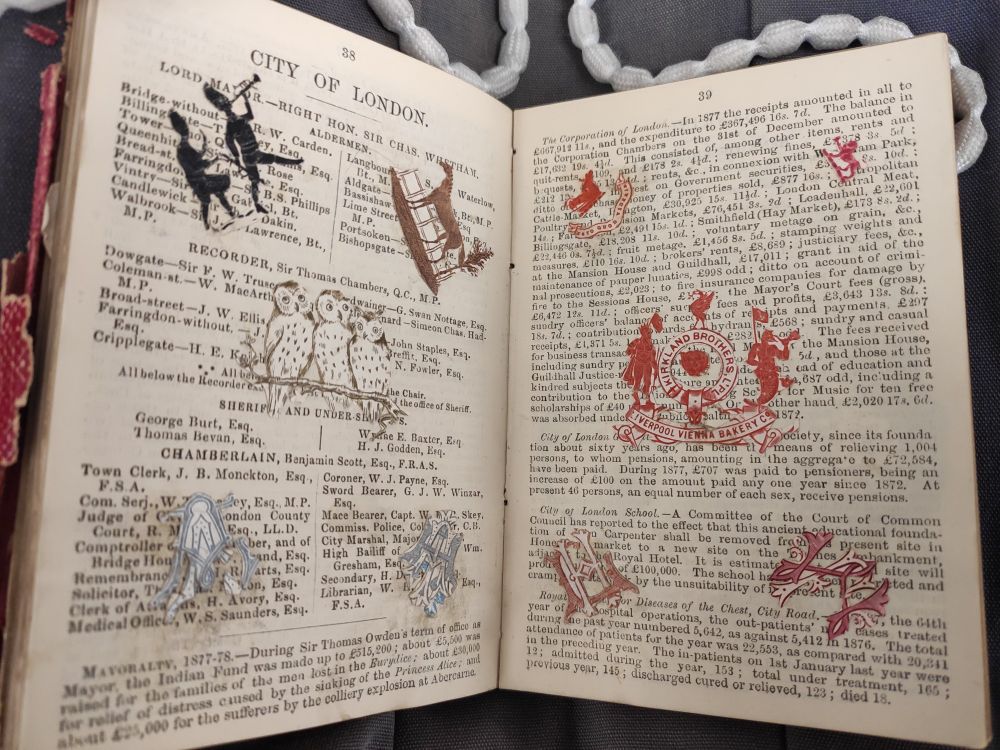 38
CITY OF LONDON.
LORD MAYOR.—RIGHT HON. SIR CHAS. WHETHAM.
ALDERMEN.
Bridge-without
Billingsgate R. W. Carden.
Tower
Queenhithe Rose
Bread-st. Esq.
Farringdon S.B.S. Phillips
Vintry Bt.
Candlewick Dakin.
Walbrook Lawrence, Bt.,
M.P.
Langbourn
Bt., M.
Aldgate
Bassishaw Bt., M.P.
Lime Street
M.P.
Portsoken
Bishopsgate
RECORDER, Sir Thomas Chambers, Q.C., M.P.
Dowgate—Sir F. W. Trusc
Coleman-st.—W. MacArth
M.P.
Broad-street—J. W. Ellis
Farringdon-without.—J.
Esq.
Cripplegate—H. E. K
G. Swan Nottage, Esq.
Simeon Chas. Had-
John Staples, Esq.
Esq.
N. Fowler, Esq.
All below the Chair.
All below the Recorder the office of Sheriff.
SHERIFFS AND UNDER-
George Burt, Esq.
Thomas Bevan, Esq.
E. Baxter, Esq
H. J. Godden, Esq.
CHAMBERLAIN, Benjamin Scott, Esq., F.R.A.S.
Town Clerk, J. B. Monckton, Esq.,
F.S.A.
Com. Serj., W. T. Esq., M.P.
Judge of London County
Court, R. M Esq., LL.D.
Comptroller of and of
Bridge Hou and, Esq.
Remembran Esq.
Solicitor, T Esq.
Clerk of H. Avory, Esq.
Medical Officer, W. S. Saunders, Esq.
Coroner, W. J. Payne, Esq.
Sword Bearer, G. J. W. Winzar,
Esq.
Mace Bearer, Capt. W. Skey,
Commiss. Police, Col. C.B.
City Marshal, Major
High Bailiff of Wm.
Gresham, Esq.
Secondary, H. De Esq.,
Librarian, W.
F.S.A.
MAYORALTY, 1877-78.—During Sir Thomas Owden's term of office as
Mayor, the Indian Fund was made up to £515,200; about £5,500 was
raised for the families of the men lost in the Eurydice; about £30,000
for relief of distress caused by the sinking of the Princess Alice; and
about £25,000 for the sufferers by the colliery explosion at Abercarne.
39
The Corporation of London.—In 1877 the receipts amounted in all to
£667,912 11s., and the expenditure to £367,496 16s. 7d. The balance in
the Corporation Chambers on the 31st of December amounted to
£17,632 19s. 4½d. This consisted of, among other items, rents and
quit-rents, £109, and £178 2s. 4½d.; renewing fines, 3s 5d;
bequests, rents, &c., in connexion with Park,
£212 on Government securities, 10d.:
ditto of properties sold, £877 16s.; Metropolitan
Cattle-Market, £30,925 15s. 11½d; London Central Meat,
Poultry and Provision Markets, £76,451 3s. 2d; Leadenhall, £22,601
14s; £2,491 15s. 1d; Smithfield (Hay Market), £173 8s. 2d.;
Billingsgate, £18,208 11s. 10d.; voluntary metage on grain, &c.,
£22,446 0s. 7½d.; fruit metage, £1,456 8s. 5d.; stamping weights and
measures, £110 16s. 10d.; brokers' rents, £8,689; justiciary fees, &c.,
at the Mansion House and Guildhall, £17,011; grant in aid of the
maintenance of pauper lunatics, £998 odd; ditto on account of crimi-
nal prosecutions, £2,023; to fire insurance companies for damage by
fire to the Sessions House, the Mayor's Court fees (gross),
£6,472 12s. 11d; officers' fees and profits, £3,643 13s. 8d:
sundry officers' balance of accounts of receipts and payments, £297
18s. 7d.; contributions hydrants, £568; sundry and casual
receipts, £1,371 5s. The fees received
for business transac Mansion House,
including sundry 5d, and those at the
Guildhall Justice-r of education and
kindred subjects the £ ,687 odd, including a
contribution to the School for Music for ten free
scholarships of £40 other hand, £2,020 17s. 6d.
was absorbed under Public Health 1872.
KIRKLAND BROTHERS
LIVERPOOL VIENNA BAKERY CO
City of London society, since its founda
tion about sixty years ago, has been the means of relieving 1,004
persons, to whom pensions, amounting in the aggregate to £72,584,
have been paid. During 1877, £707 was paid to pensioners, being an
increase of £100 on the amount paid any one year since 1872. At
present 46 persons, an equal number of each sex, receive pensions.
City of London School.—A Committee of the Court of Common
Council has reported to the effect that this ancient educational founda-
Carpenter shall be removed from its present site in
market to a new site on the Embankment,
Royal Hotel. It is estimated site will
of £100,000. The school has and
by the unsuitability of
Royal for Diseases of the Chest, City Road.— the 64th
year of hospital operations, the out-patients' cases treated
during the past year numbered 5,642, as against 5,412 in 1876. The total
attendance of patients for the year was 22,553, as compared with 20,341
in the preceding year. The in-patients on 1st January last year were
12; admitted during the year, 153; total under treatment, 165;
previous year, 145; discharged cured or relieved, 123; died 18.